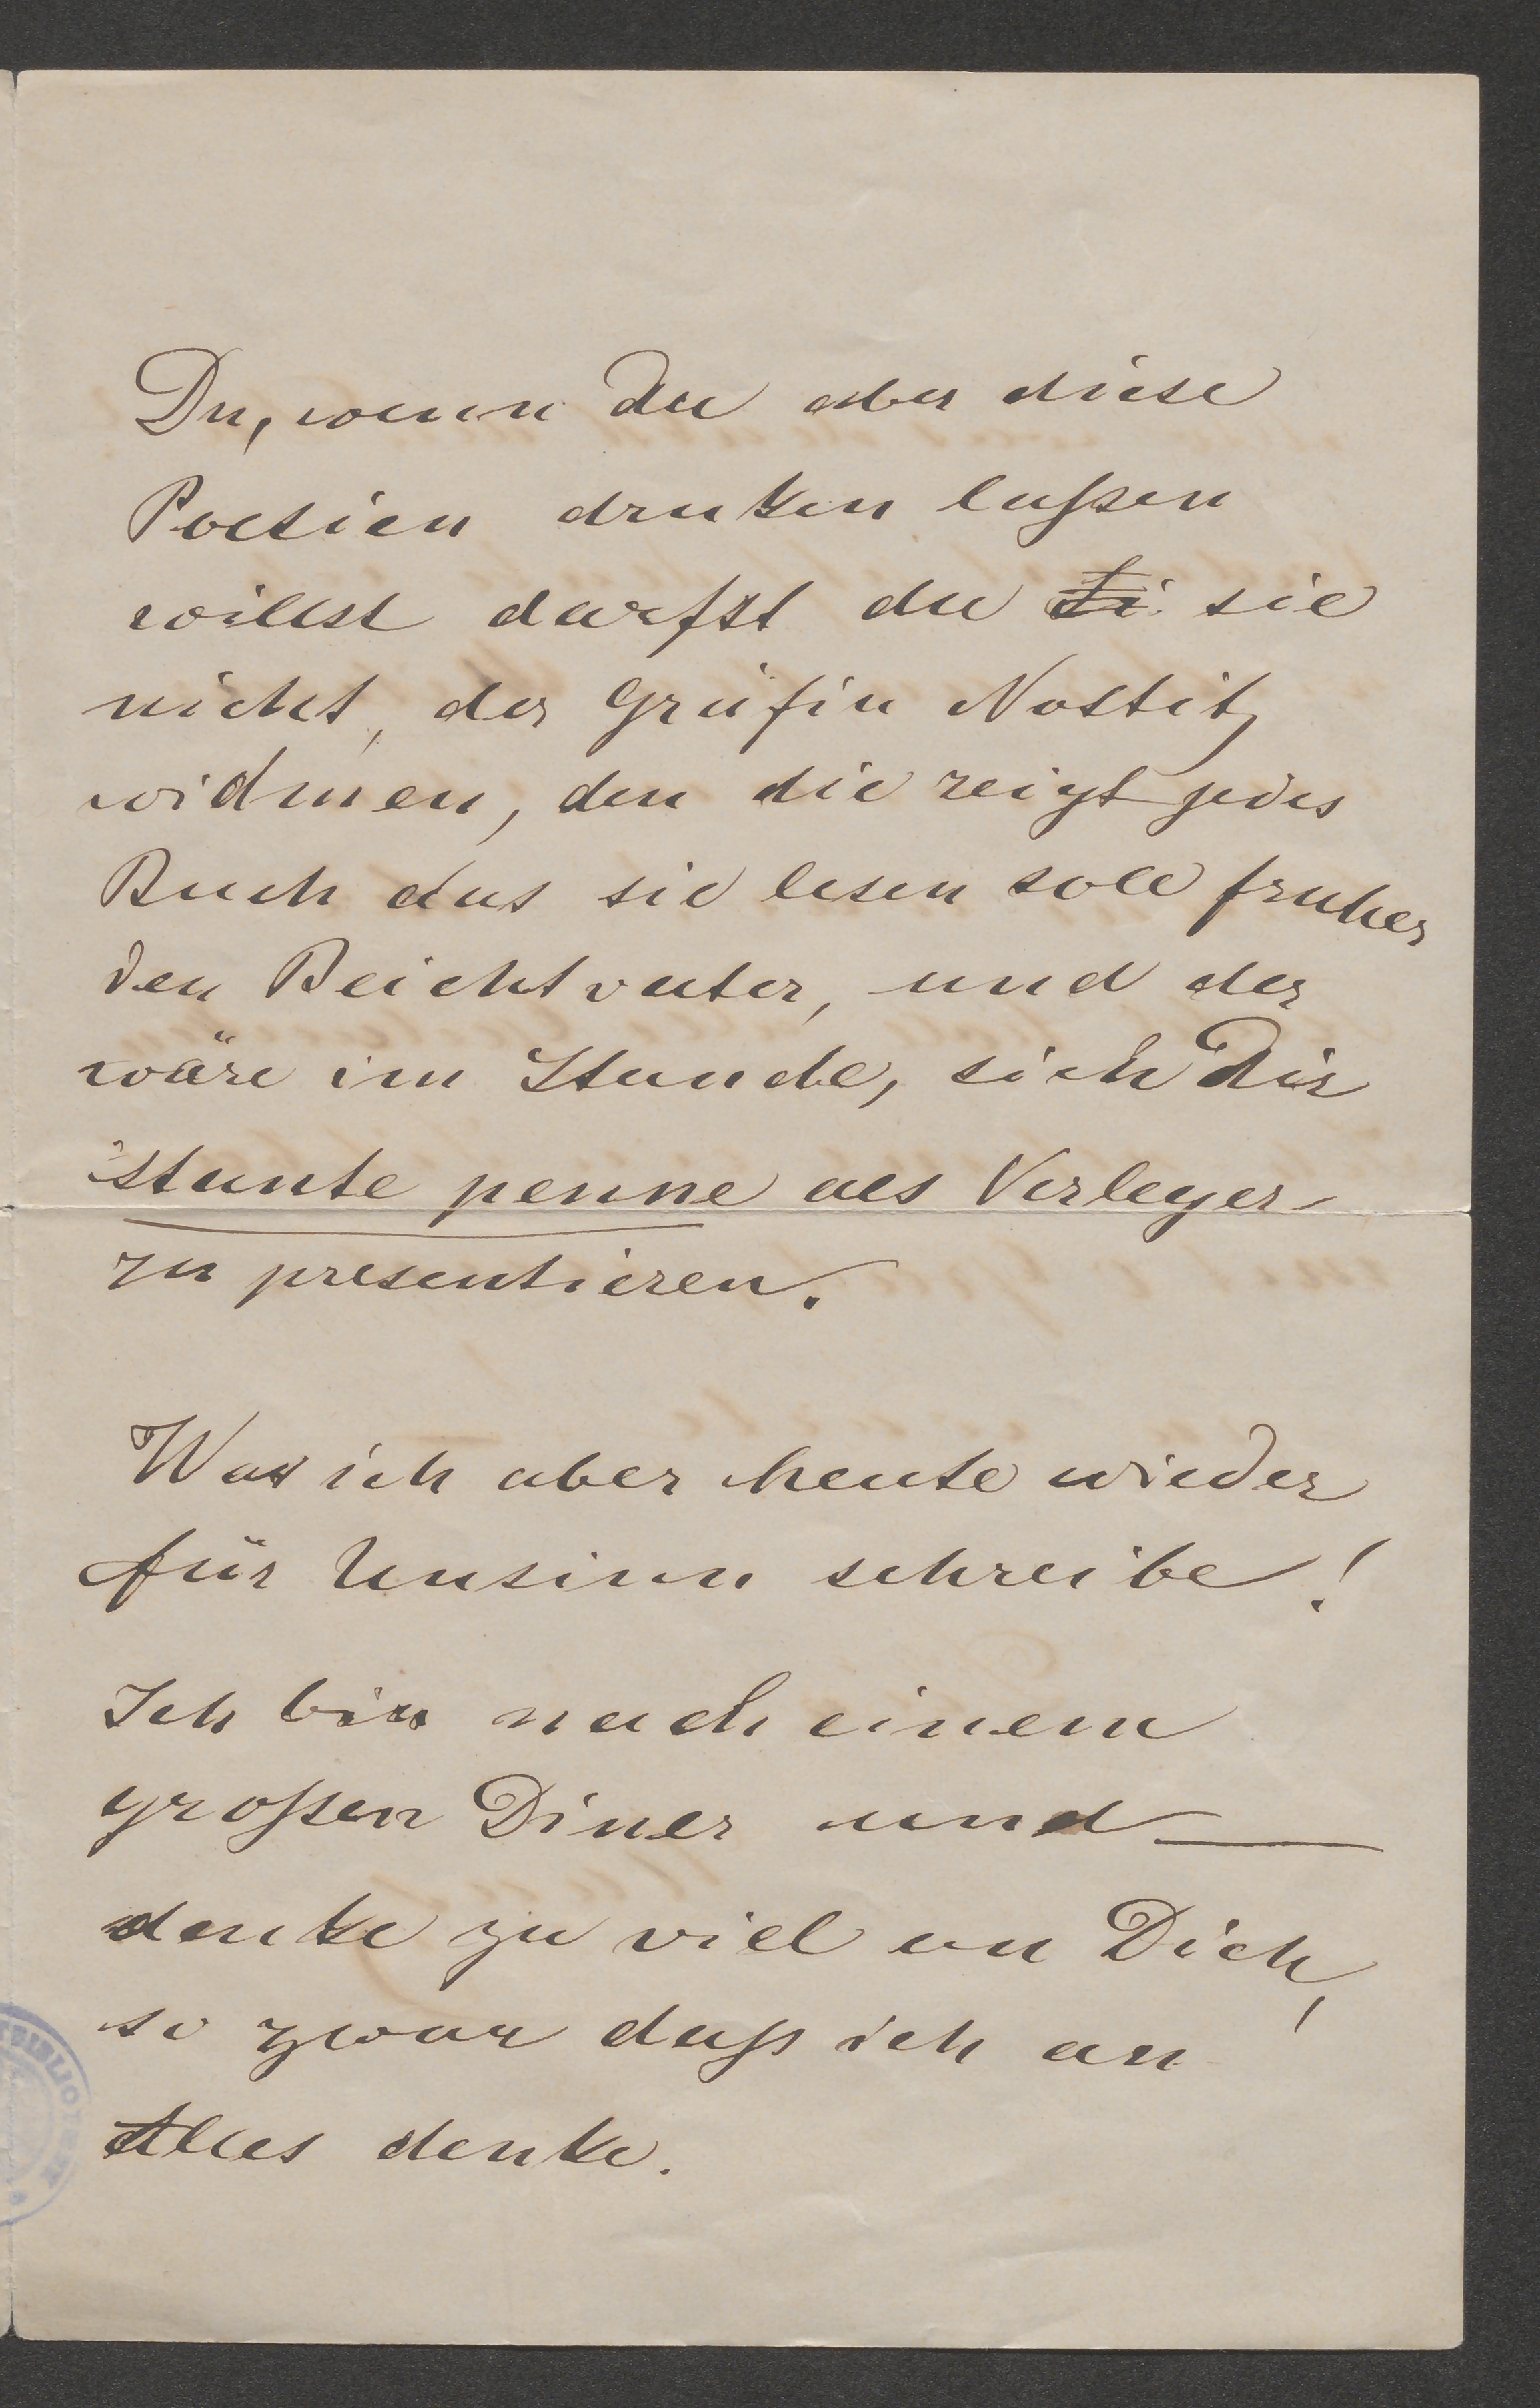 Du, wenn du aber diese
Poesien druken laßen
willst darfst du si sie
nicht, der Gräfin Nostitz
widmen, den die zeigt jedes
Buch das sie lesen soll fruher
den Beichtvater, und der
wäre im Stande, sich Dir
stante penne als Verleger
zu presentieren.
Was ich aber heute wieder
für Unsinn schreibe!
Ich bin nach einem
großen Diner und —
denke zu viel an Dich,
so zwar daß ich an
Alles denke.